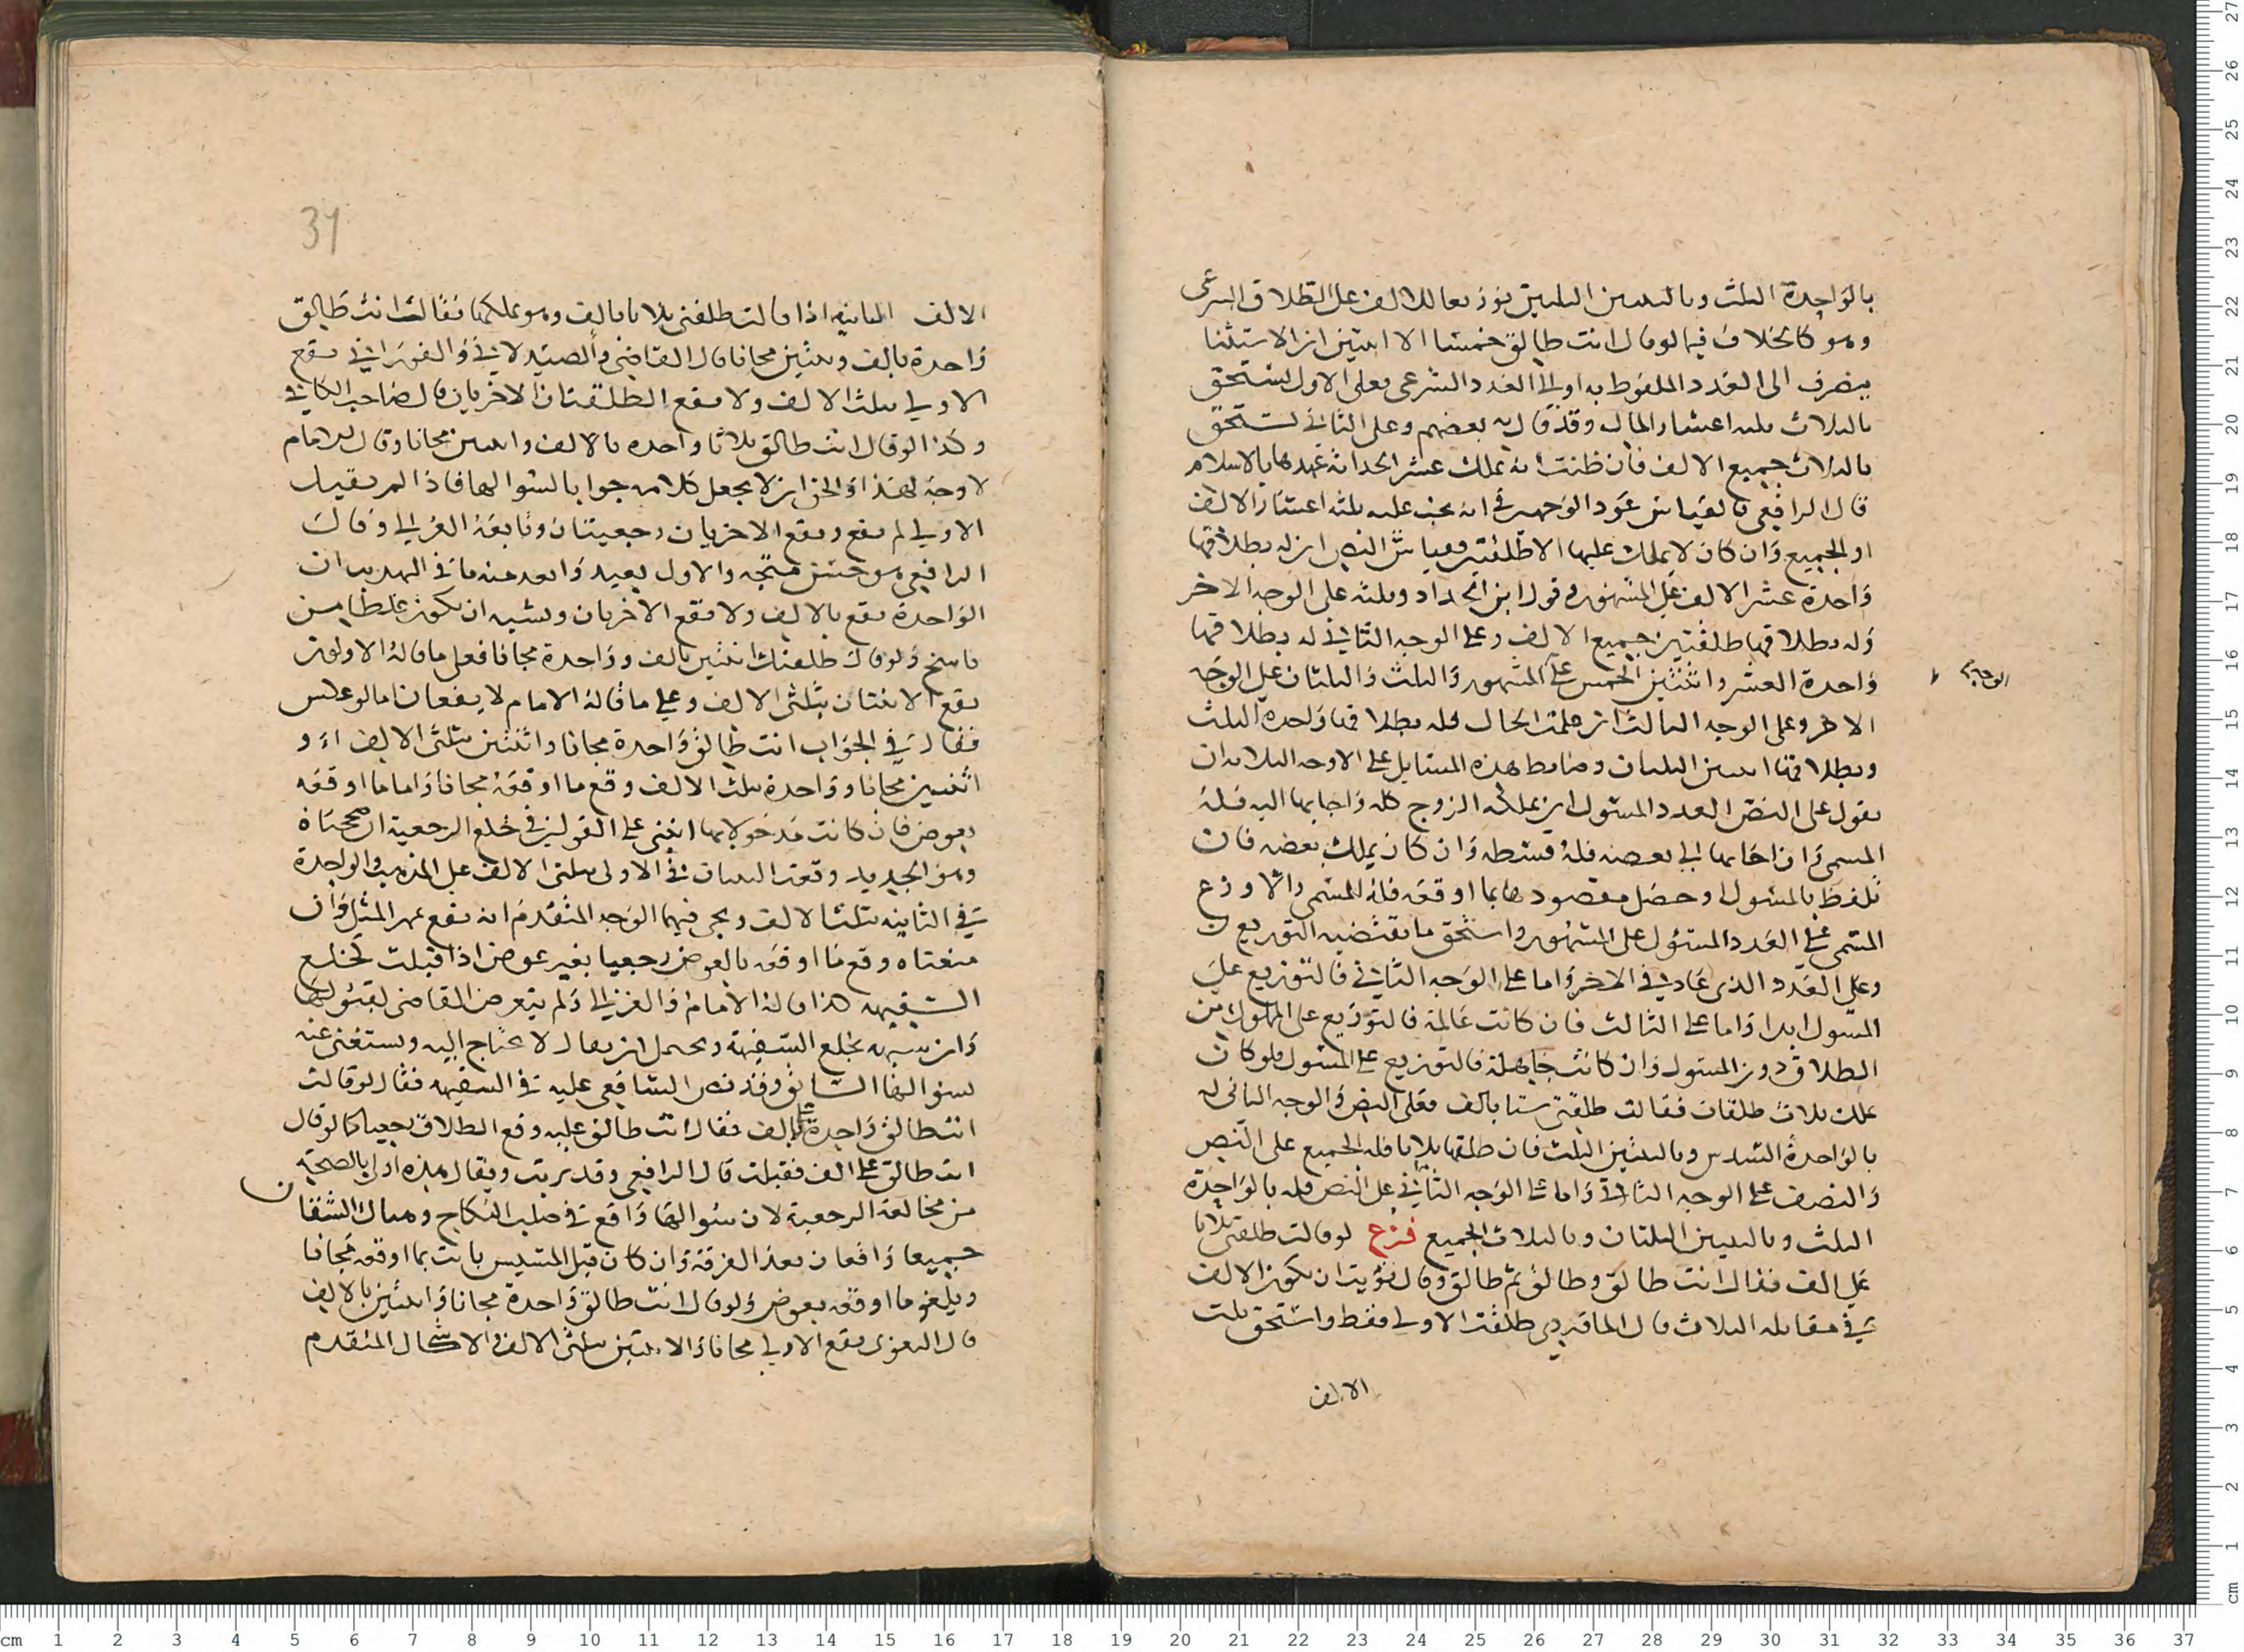 بالواحدة الثلث وبالثنتين الثلثين توزيعا للالف على الطلاق الشرعى
وهو كالخلاف فيما لو قال انت طالق خمسا الا اثنتين ان الاستثنا
ينصرف الى العدد الملفوظ به او الى العدد الشرعى فعلى الاول يستحق
بالثلاث ثلثه اعشار المال وقد قال به بعضهم وعلى الثانى يستحق
بالثلاث جميع الالف فان ظنت انه يملك عشر الحداثه عهدها بالاسلام
قال الرافعى فالقياس عود الوجهين فى انه يجب عليه ثلثه اعشار الالف
او الجميع وان كان لا يملك عليها الا طلقتين فقياس النص ان له بطلاقها
واحدة عشر الالف على المشهور وقول ابن الحداد وثلثه على الوجه الاخر
وله بطلاقها طلقتين جميع الالف وعلى الوجه الثانى له بطلاقها
واحدة العشر واثنتين الخمس على المشهور والثلث والثلثان على الوجه
الاخر وعلى الوجه الثالث ان علمت الحال فله بطلاقها واحدة الثلث
وبطلاقها اثنتين الثلثان وضابط هذه المسايل على الاوجه الثلاثه ان
نقول على النص العدد المسول ان يملكه الزوج كله واجابها اليه فله
المسمى وان اجابها الى بعضه فله قسطه وان كان يملك بعضه فان
تلفظ بالمسول او حصل مقصودها بما اوقعه فله المسمى والا وزع
المسمى على العدد المسئول على المشهور واستحق ما يقتضيه التوزيع
وعلى العدد الذى عاد فى الاخر واما على الوجه الثانى فالتوزيع على
المسول ابدا واما على الثالث فان كانت عالمة فالتوزيع على المملوك من
الطلاق دون المسول وان كانت جاهلة فالتوزيع على المسول فلو كان
يملك ثلاث طلقات فقالت طلقنى ستا بالف فعلى النص والوجه الثانى له
بالواحدة السدس وبالثنتين الثلث فان طلقها ثلاثا فله الجميع على النص
والنصف على الوجه الثانى واما على الوجه الثانى على النص فله بالواحدة
الثلث وبالثنتين الثلثان وبالثلاث الجميع فرع لو قالت طلقنى ثلاثا
على الف فقال انت طالق وطالق ثم طالق وقال نويت ان تكون الالف
فى مقابله الثلاث قال الماوردى طلقت الاولى فقط واستحق ثلث
الالف
الالف الثانيه اذا قالت طلقنى ثلاثا بالف وهو يملكها فقال انت طالق
واحدة بالف وثنتين مجانا قال القاضى والصيدلانى والفورانى يقع
الاولى بثلث الالف ولا يقع الطلقتان الاخريان قال صاحب الكافى
وكذا لو قال انت طالق ثلاثا واحده بالالف واثنتين مجانا وقال الامام
لا وجه لهذا والحق ان لا يجعل كلامه جوابا لسوالها فاذا لم تقبل
الاولى لم يقع ويقع الاخريان رجعيتان وتابعه الغزالى وقال
الرافعى هو حسن متجه والاول بعيد وابعد منه ما فى التهذيب ان
الواحدة يقع بالالف ولا يقع الاخريان ويشبه ان يكون غلطا من
ناسخ ولو قال طلقتك اثنتين بالف وواحدة مجانا فعلى ما قاله الاولون
يقع الاثنتان بثلثى الالف وعلى ما قاله الامام لا يقعان اما لو عكس
فقال فى الجواب انت طالق واحدة مجانا واثنتين بثلثى الالف او
اثنتين مجانا وواحدة بثلث الالف وقع ما اوقعه مجانا واما ما اوقعه
بعوض فان كانت مدخولا بها انبنى على القولين فى خلع الرجعية ان صححناه
وهو الجديد وقعت الثنتان فى الاولى بثلثى الالف على المذهب والواحدة
فى الثانيه بثلث الالف ويجى فيهما الوجه المتقدم انه يقع بمهر المثل وان
منعناه وقع ما اوقعه بالعوض رجعيا بغير عوض اذا قبلت كخلع
السفيهه هذا قاله الامام والغزالى ولم يتعرض القاضى لقبولها
وان شبهه بخلع السفيهة ويحتمل ان يقال لا يحتاج اليه ويستغنى عنه
بسوالها السابق وقد نص الشافعى عليه فى السفيهه فقال لو قالت
انت طالق واحدة بالف فقال انت طالق عليه وقع الطلاق رجعيا كما لو قال
انت طالق على الف فقبلت قال الرافعى وقد يرتب ويقال هذه اولى بالصحة
من مخالعة الرجعية لان سوالها واقع فى صلب النكاح وهناك الشقان
جميعا واقعان بعد الفرقة وان كان قبل المسيس بانت بما اوقعه مجانا
ويلغو ما اوقعه بعوض ولو قال انت طالق واحدة مجانا واثنتين بالالف
قال البغوى يقع الاولى مجانا والاثنتين بثلثى الالف والاشكال المتقدم